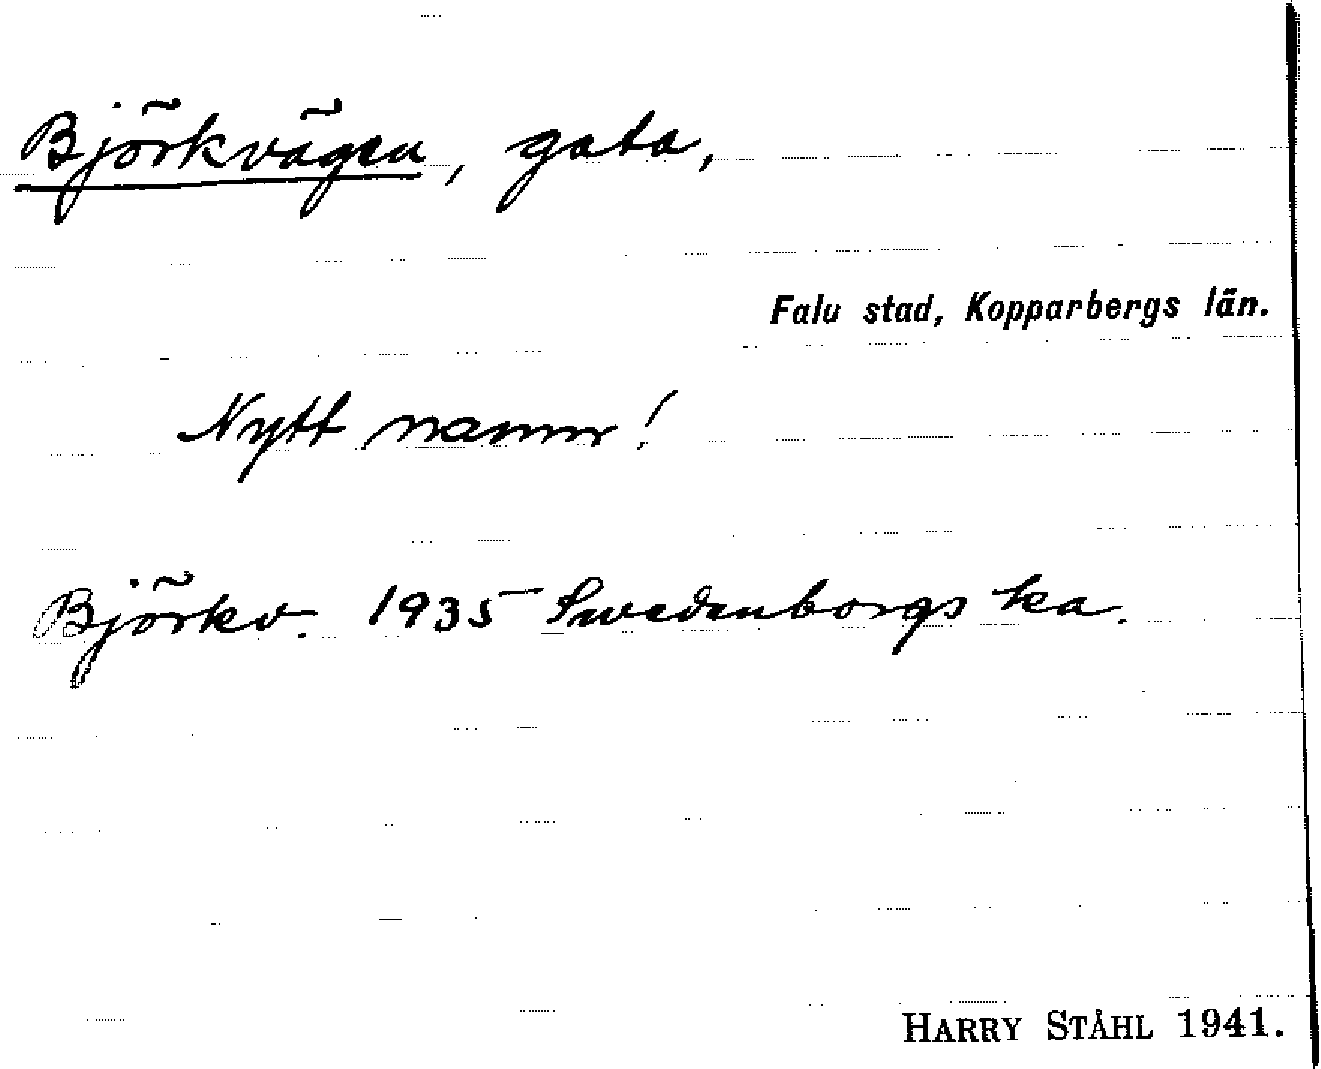 Björkvägen, gata,
Falu stad, Kopparbergs län.
Nytt namn!
Björkv. 1935 Swedenborgs ka.
HARRY STÅHL 1941.